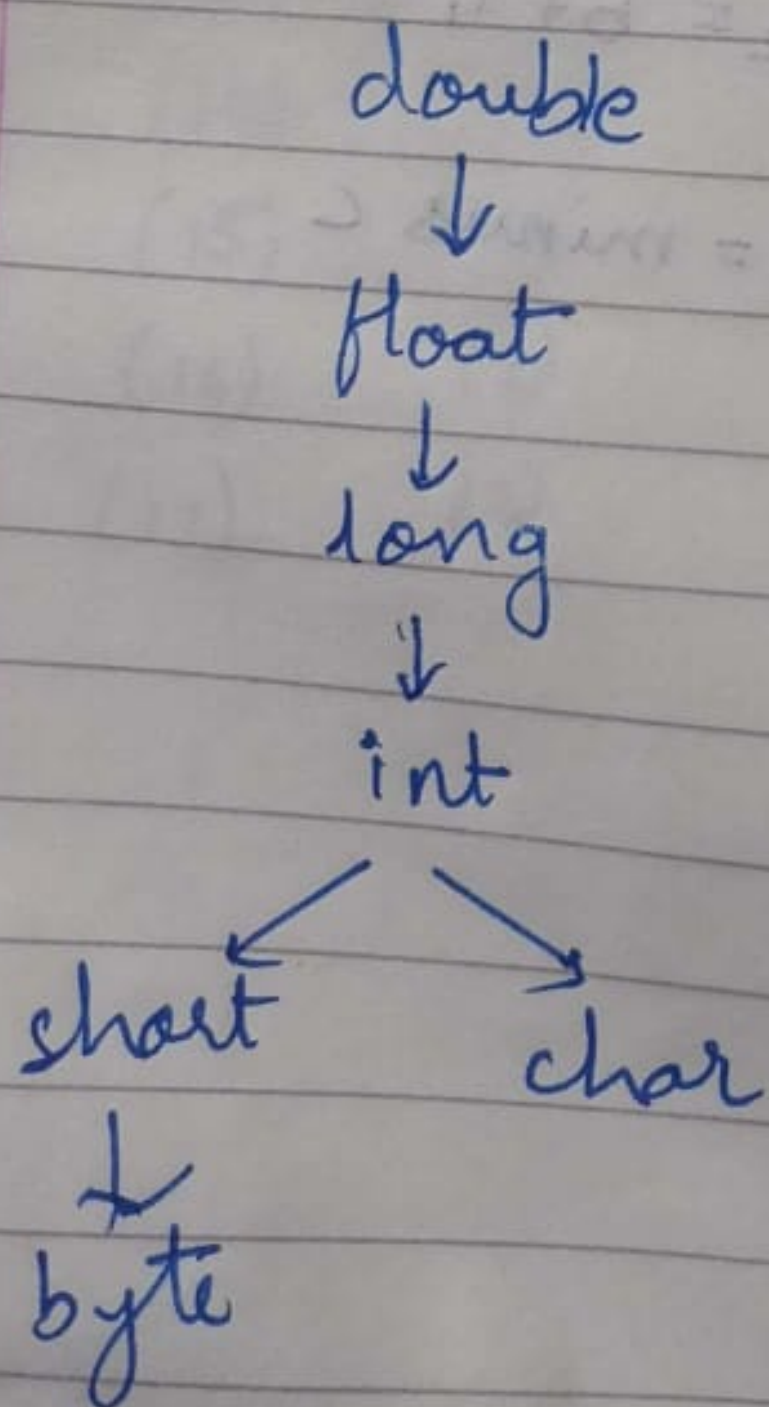 double
float
long
int
short char
byte